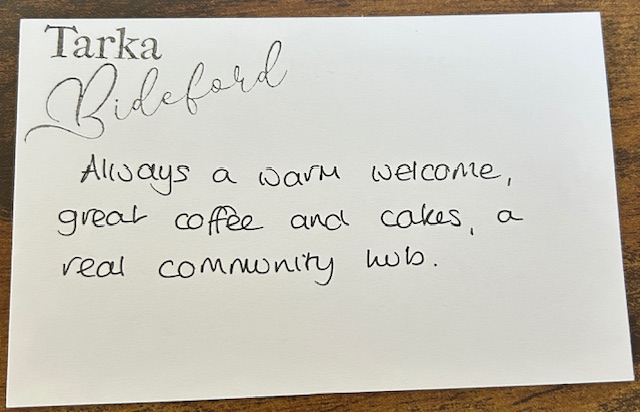 Tarka
Bideford
Always a warm welcome,
great coffee and cakes, a
real community hub.